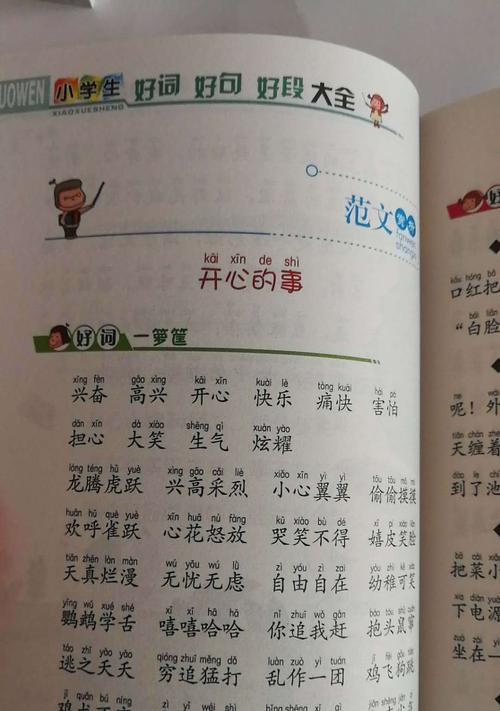 UOWEN 小学生 好词 好句 好段 大全
XIAOXUESHENG
范文
kāi xīn de shì
开心的事
好词 一箩筐
xīng fèn gāo xìng kāi xīn kuài lè tòng kuài hài pà
兴奋 高兴 开心 快乐 痛快 害怕
dān xīn dà xiào shēng qì xuàn yào
担心 大笑 生气 炫耀
lóng téng hǔ yuè xìng gāo cǎi liè xiǎo xīn yì yì tōu tōu mō mō
龙腾虎跃 兴高采烈 小心翼翼 偷偷摸摸
huān hū què yuè xīn huā nù fàng kū xiào bù dé xī pí xiào liǎn
欢呼雀跃 心花怒放 哭笑不得 嬉皮笑脸
tiān zhēn làn màn wú yōu wú lǜ zì yóu zì zài yòu zhì kě xiào
天真烂漫 无忧无虑 自由自在 幼稚可笑
yīng wǔ xué shé xī xī hā hā nǐ zhuī wǒ gǎn bào tóu shǔ cuàn
鹦鹉学舌 嘻嘻哈哈 你追我赶 抱头鼠窜
táo zhī yāo yāo qióng zhuī měng dǎ luàn zuò yì tuán jī fēi gǒu tiào
逃之夭夭 穷追猛打 乱作一团 鸡飞狗跳
jī quǎn bù níng
好
口红把
bái liǎn
“白脸
呢！外
tiān chán zhe
天缠着
dào le chí
到了池
把菜小
xià diàn yuán
下电源
zuò zài yī
坐在一